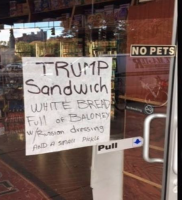 TRUMP
Sandwich
WHITE BREAD
Full of BALONEY
W/Russian dressing
AND A small Pickle
NO PETS
Pull